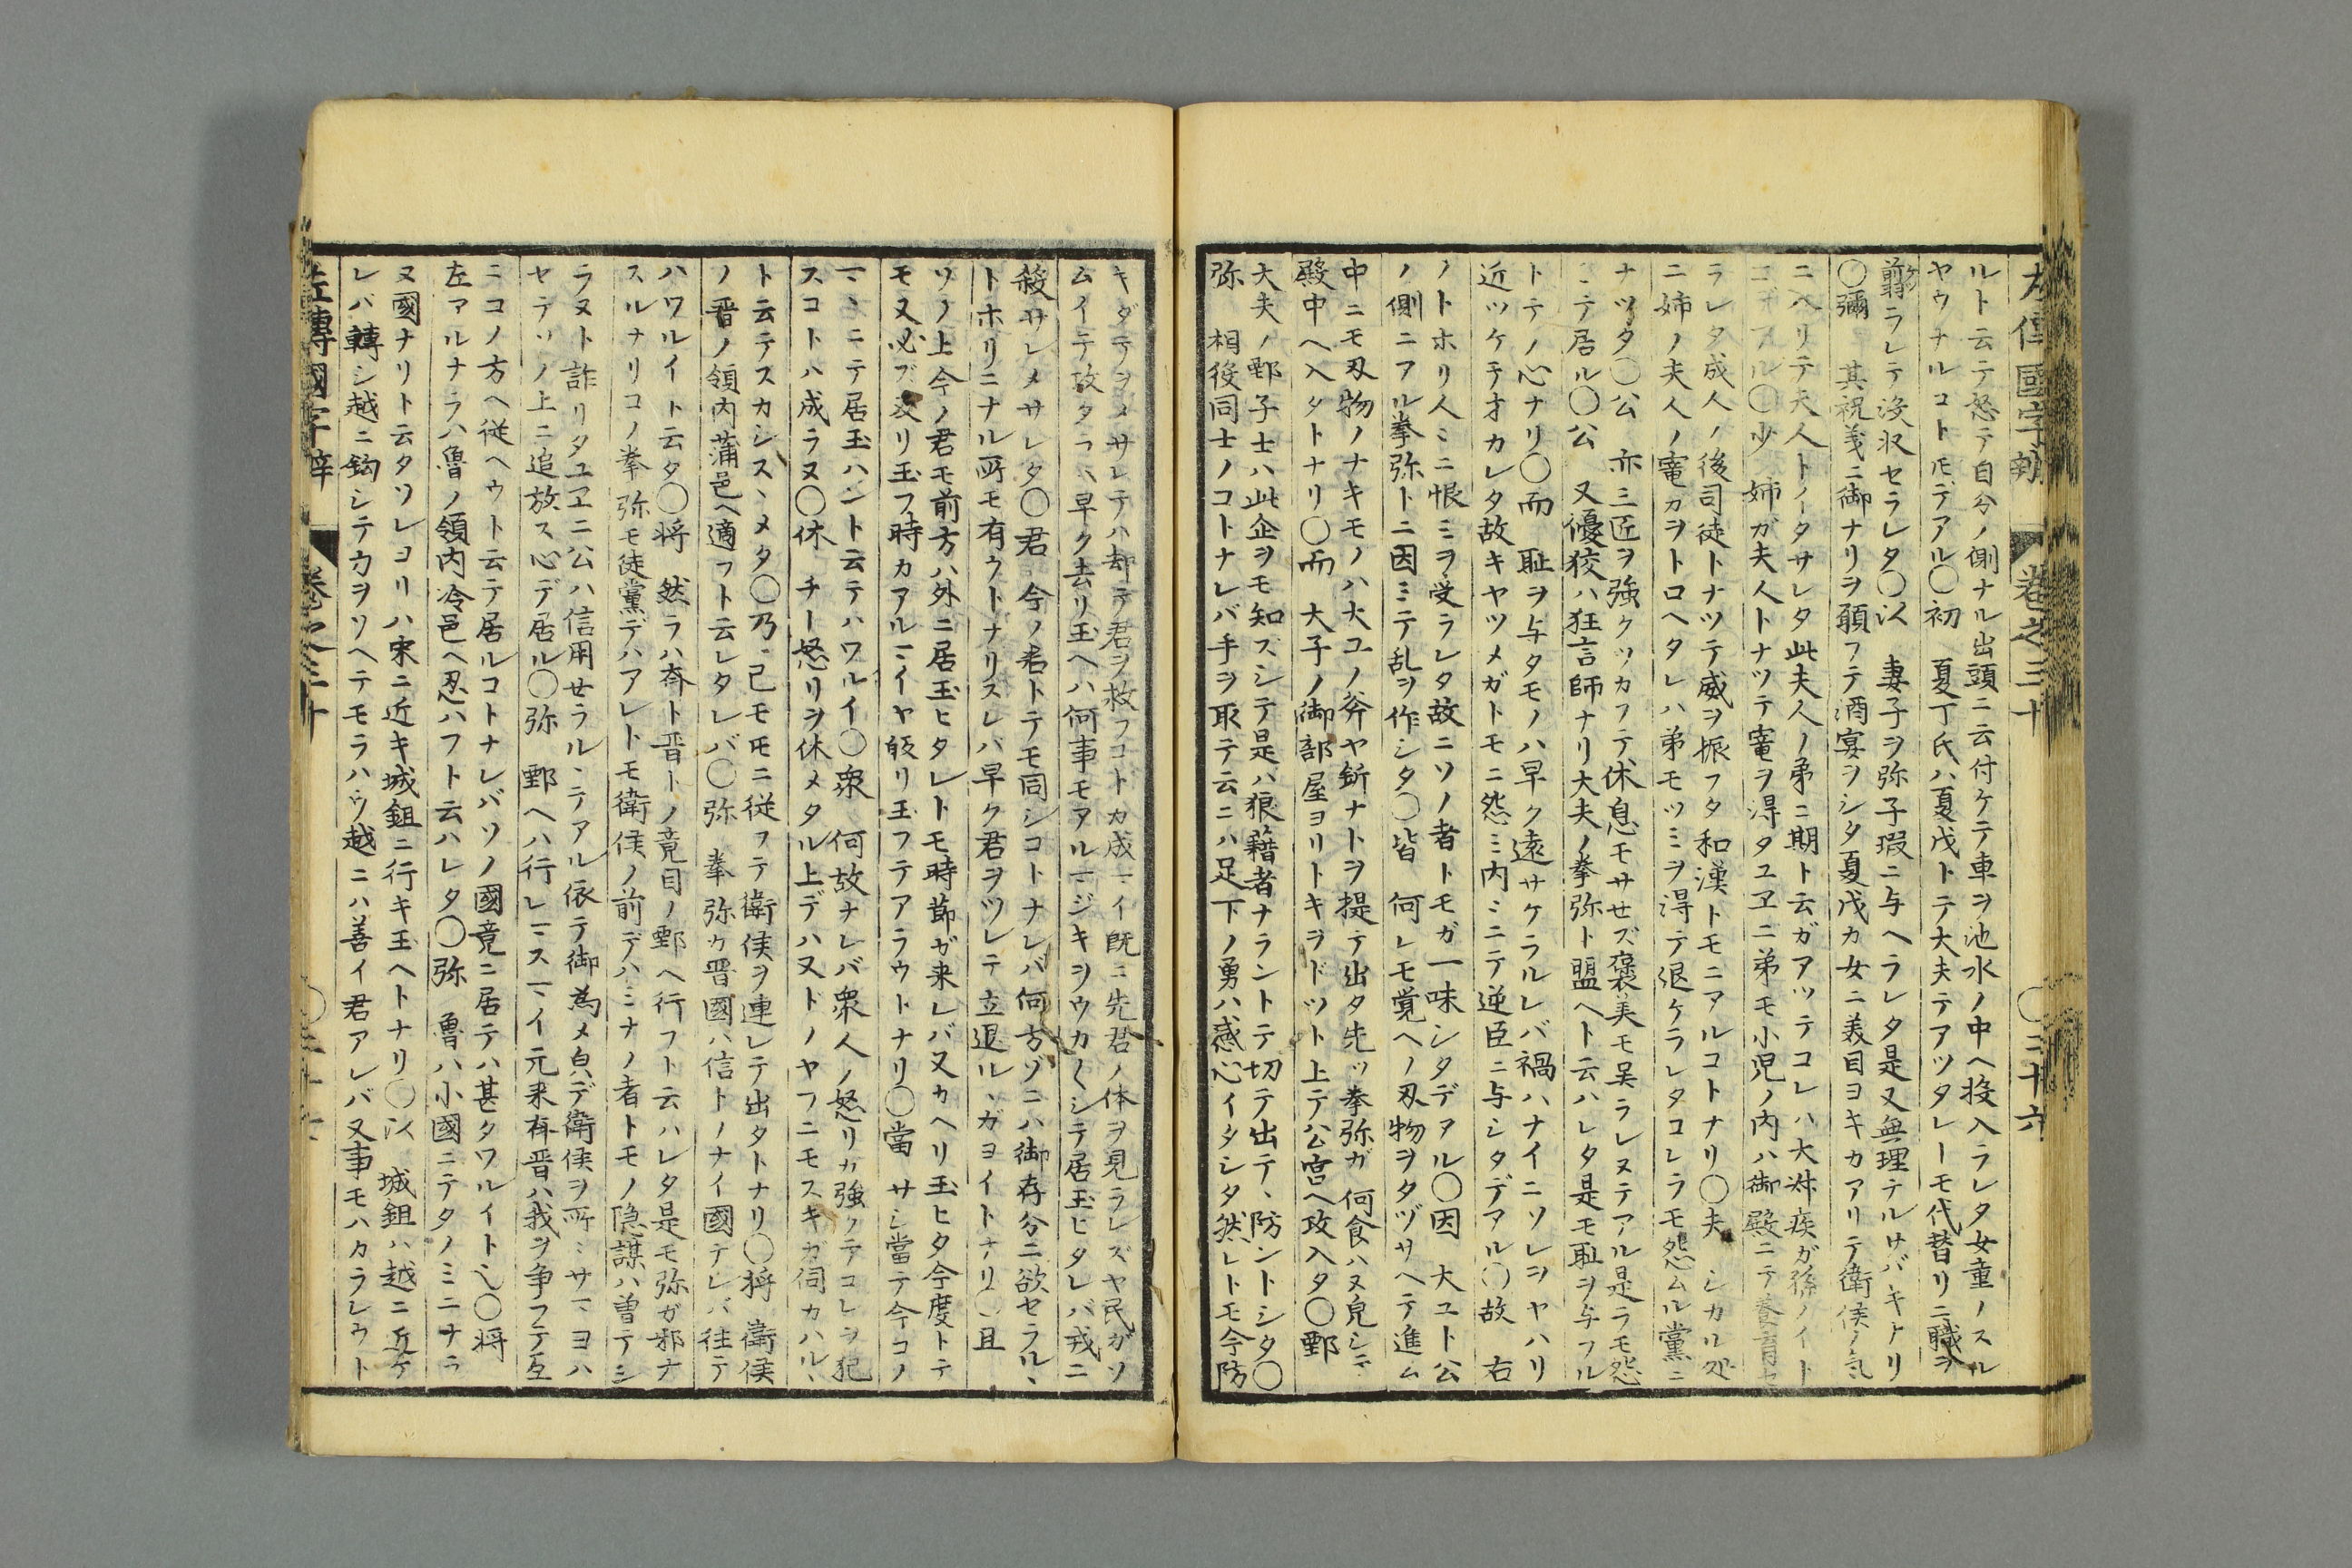 左傳國字辯 巻之三十 〇三十六
ルト云テ怒テ自分ノ側ナル出頭ニ云付ケテ車ヲ池水ノ中ヘ投入ラレタ女童ノスル
ヤウナルコトモデアル〇初 夏丁氏ハ夏戊トテ大夫テアツタレーモ代替リニ職ヲ
翦ラレテ没収セラレタ〇以 妻子ヲ弥子瑕ニ与ヘラレタ是又無理テルサバキナリ
〇彌 其祝義ニ御ナリヲ願フテ酒宴ヲシタ夏戊カ女ニ義目ヨキカアリテ衛侯ノ気
ニ入リテ夫人トイタサレタ此夫人ノ弟ニ期ト云ガアツテコレハ大叔疾ガ孫ノイト
コデアル〇少 姉ガ夫人トナツテ寵ヲ淂タユヱニ弟モ小児ノ内ハ御殿ニテ養育セ
ラレタ成人ノ後司徒トナツテ威ヲ振フタ和漢トモニアルコトナリ〇夫 シカル処
ニ姉ノ夫人ノ寵カヲトロヘタレハ弟モツミヲ淂テ退ケラレタコレラモ怨ムル黨ニ
ナツタ〇公 亦三匠ヲ強クツカフテ休息モサセズ褒美モ呉ラレヌテアル是ラモ怨
ミテ居ル〇公 又優狡ハ狂言師ナリ大夫ノ拳弥ト盟ヘト云ハレタ是モ耻ヲ与フル
トテノ心ナリ〇而 耻ヲ与タモノハ早ク遠サケラルレバ禍ハナイニソレヲヤハリ
近ツケテオカレタ故キヤツメガトモニ怨ミ内ミニテ逆臣ニ与シタデアル〇故 右
ノトホリ人ミニ恨ミヲ受ラレタ故ニソノ者トモガ一味シタデアル〇因 大ユト公
ノ側ニアル拳弥トニ因ミテ乱ヲ作シタ〇皆 何レモ覚ヘノ刄物ヲタヅサヘテ進ム
中ニモ刄物ノナキモノハ大エノ斧ヤ釿ナトヲ提テ出タ先ツ拳弥ガ何食ハヌ皃シテ
殿中ヘ入タトナリ〇而 大子ノ御部屋ヨリトキヲドツト上テ公宮ヘ攻入タ〇鄄
大夫ノ鄄子士ハ此企ヲモ知ズシテ是ハ狼藉者ナラントテ切テ出テ、防ントシタ〇
弥 相役同士ノコトナレバ手ヲ取テ云ニハ足下ノ勇ハ感心イタシタ然レトモ今防
キダテヲメサレテハ却テ君ヲ救フコトカ成マイ既ニ先君ノ体ヲ見ラレズヤ民ガソ
ムイテ攻タラハ早ク去リ玉ヘハ何事モアルマジキヲウカ〳〵シテ居玉ヒタレバ戎ニ
殺サレメサレタ〇君 今ノ君トテモ同シコトナレバ何方ゾニハ御存分ニ欲セラル、
トホリニナル所モ有ウトナリスレハ早ク君ヲツレテ立退ル、ガヨイトナリ〇且
ソノ上今ノ君モ前方ハ外ニ居玉ヒタレトモ時節ガ来レバ又カヘリ玉ヒタ今度トテ
モ又必ズ皈リ玉フ時カアルマイヤ皈リ玉フテアラウトナリ〇當 サシ當テ今コノ
マヽニテ居玉ハント云テハワルイ〇衆 何故ナレバ衆人ノ怒リカ強クテコレヲ犯
スコトハ成ラヌ〇休 チー怒リヲ休メタル上デハ又ドノヤフニモスキガ伺カハル、
ト云テスカシスヽメタ〇乃 己モ𪜈ニ従フテ衛侯ヲ連レテ出タトナリ〇将 衛侯
ノ晋ノ領内蒲邑ヘ適フト云レタレバ〇弥 拳弥ケ晋國ハ信トノナイ國テレバ往テ
ハワルイト云タ〇将 然ラハ斉ト晋トノ竟目ノ鄄ヘ行フト云ハレタ是モ弥ガ邪ナ
スルナリコノ拳弥モ徒黨デハアレトモ衛侯ノ前デハミナノ者トモノ隠謀ハ曽テシ
ラヌト詐リタユヱニ公ハ信用セラル、テアル依テ御為メ皃デ衛侯ヲ所ミサマヨハ
ヤテソノ上ニ追放ス心デ居ル〇弥 鄄ヘハ行レマスマイ元来斉晋ハ我ヲ争フテ互
ニコノ方ヘ従ヘウト云テ居ルコトナレバソノ國竟ニ居テハ甚タワルイト也〇将
左アルナラハ魯ノ領内冷邑ヘ忍ハフト云ハレタ〇弥 魯ハ小國ニテタノミニナラ
ヌ國ナリト云タソレヨリハ宋ニ近キ城鉏ニ行キ玉ヘトナリ〇以 城鉏ハ越ニ近ケ
レバ轉シ越ニ鈎シテ力ヲソヘテモラハウ越ニハ善イ君アレバ又事モハカラレウト
左傳國字辯 巻之三十